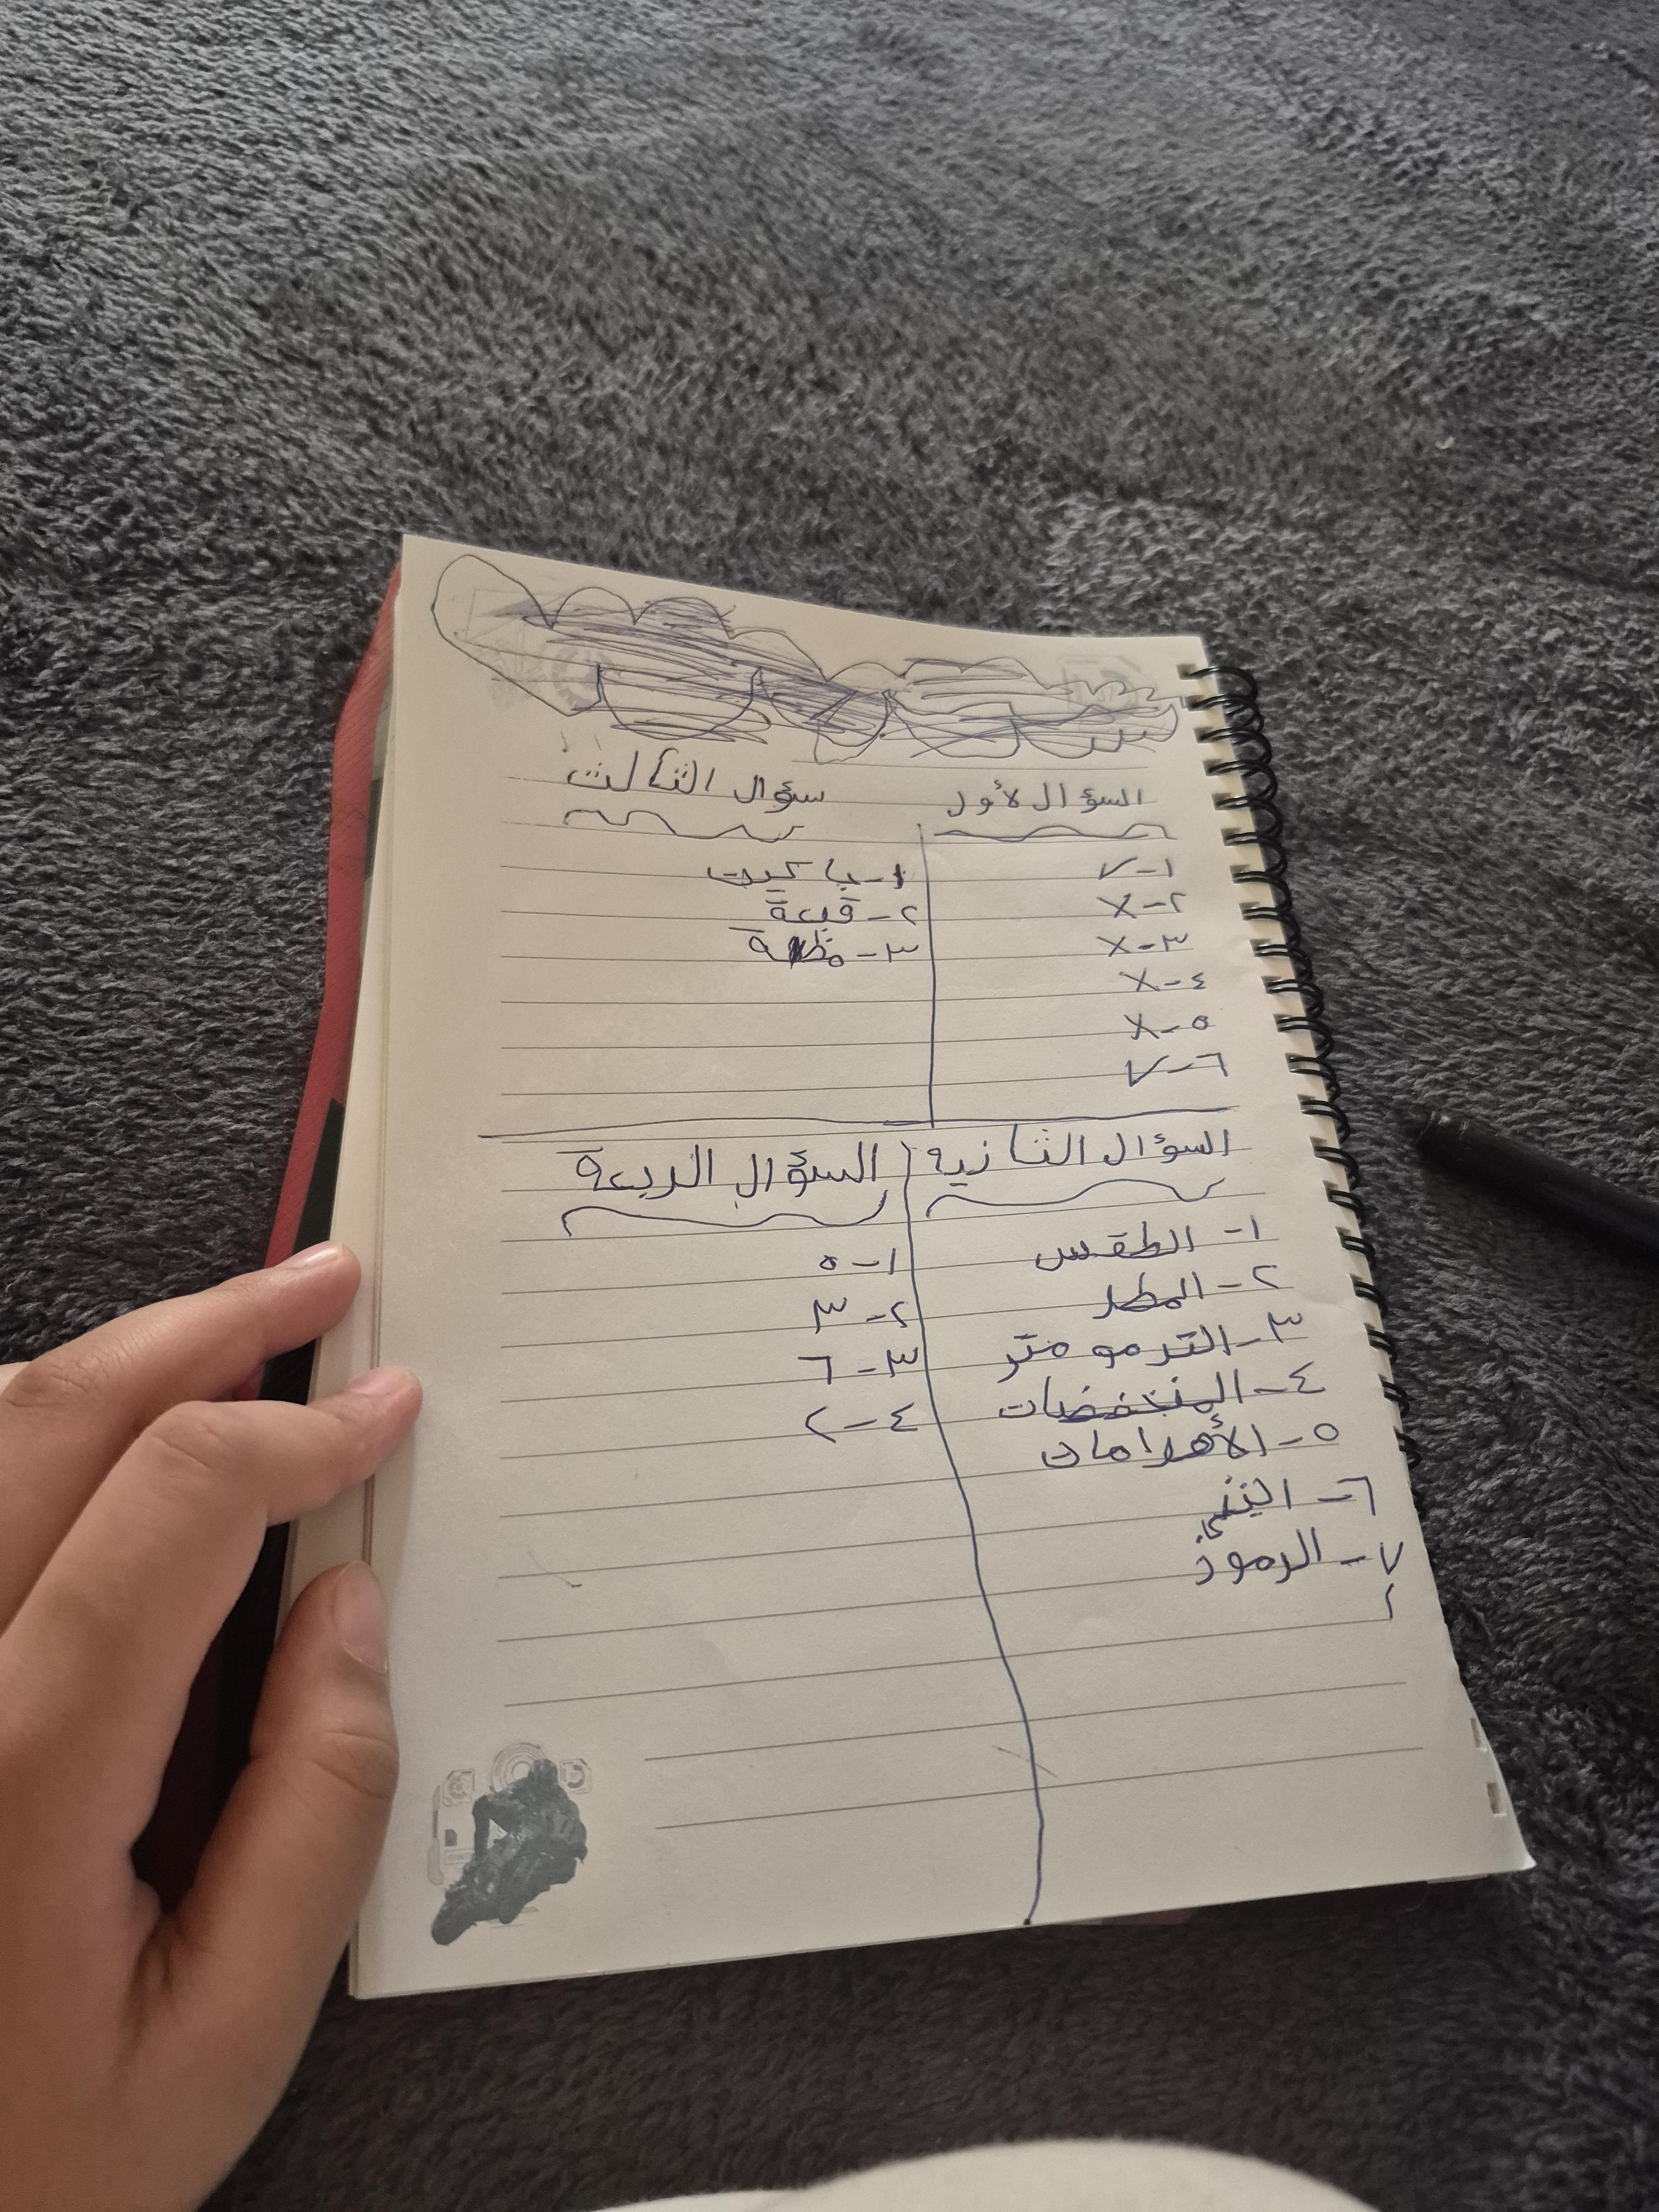 السؤال لأول
١-✓
٢-X
٣-X
٤-X
٥-X
٦-✓
سؤال الثالث
١-جاكيت
٢-قبعة
٣-مظلة
السؤال الثانية
١- الطقس
٢- المطر
٣- الترمومتر
٤- المنخفضات
٥- الأهرامات
٧- الرموز
١
السؤال الربعة
١-٥
٢-٣
٣-٦
٤-٢